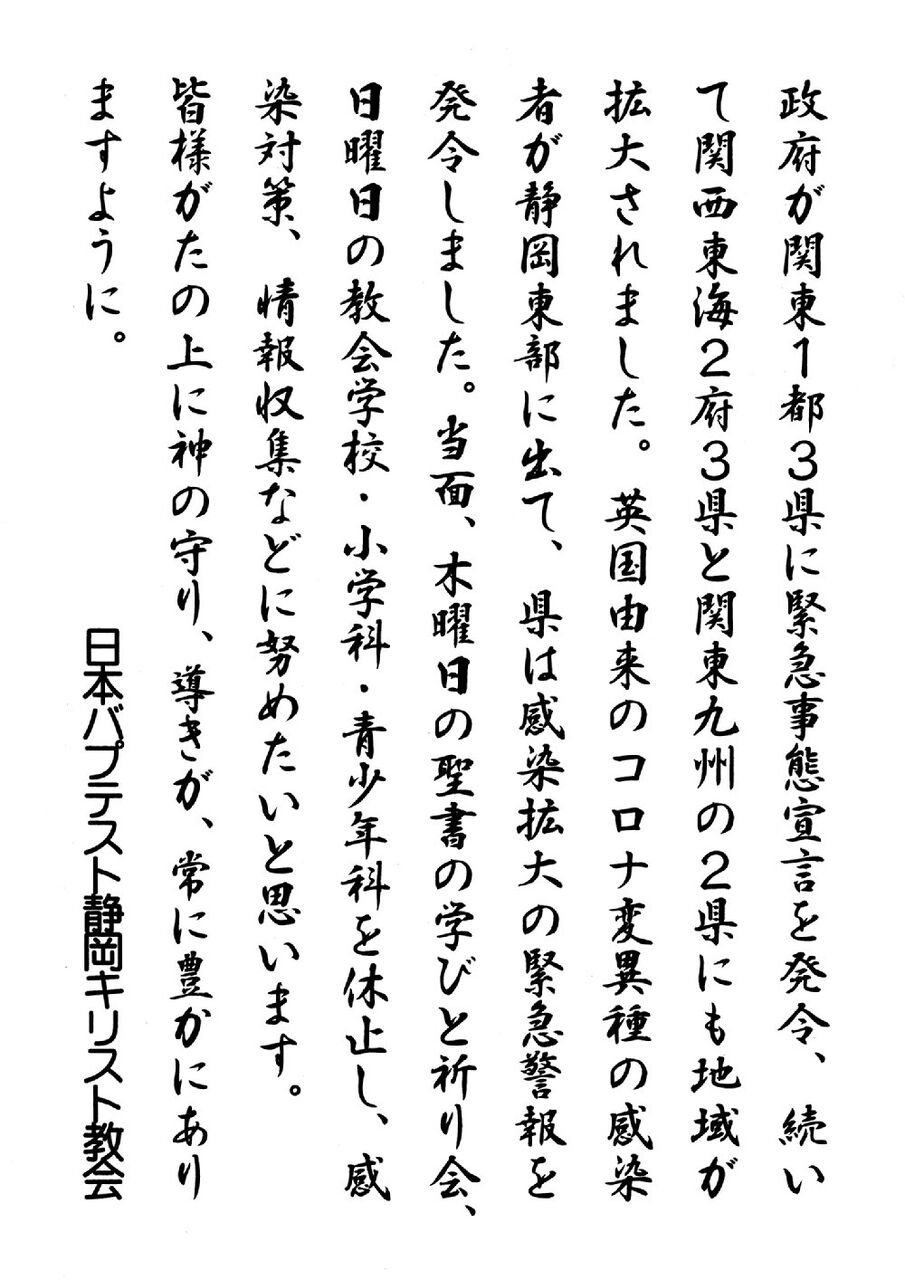 政府が関東1都3県に緊急事態宣言を発令、続い
て関西東海2府3県と関東九州の2県にも地域が
拡大されました。英国由来のコロナ変異種の感染
者が静岡東部に出て、県は感染拡大の緊急警報を
発令しました。当面、木曜日の聖書の学びと祈り会、
日曜日の教会学校・小学科・青少年科を休止し、感
染対策、情報収集などに努めたいと思います。
皆様がたの上に神の守り、導きが、常に豊かにあり
ますように。
日本バプテスト静岡キリスト教会